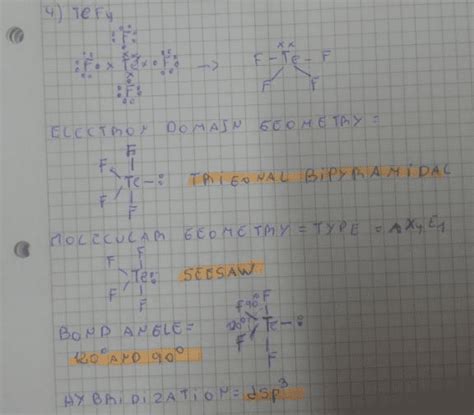 4) TeF4
F
F Te F
F
→
F - Te - F
F F
ELECTRON DOMAIN GEOMETRY =
F
F
Te - :
F
F
TRIGONAL BIPYRAMIDAL
MOLECULAR GEOMETRY = TYPE = AX4E1
F
F
Te:
F
F
SEESAW
BOND ANGLE =
F
F 90°
120° Te - :
F
F
120° AND 90°
HYBRIDIZATION = dsp³